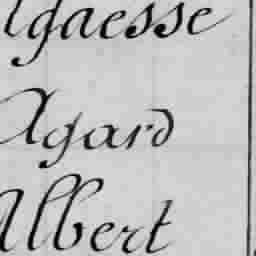 Agaesse
Agard
Albert